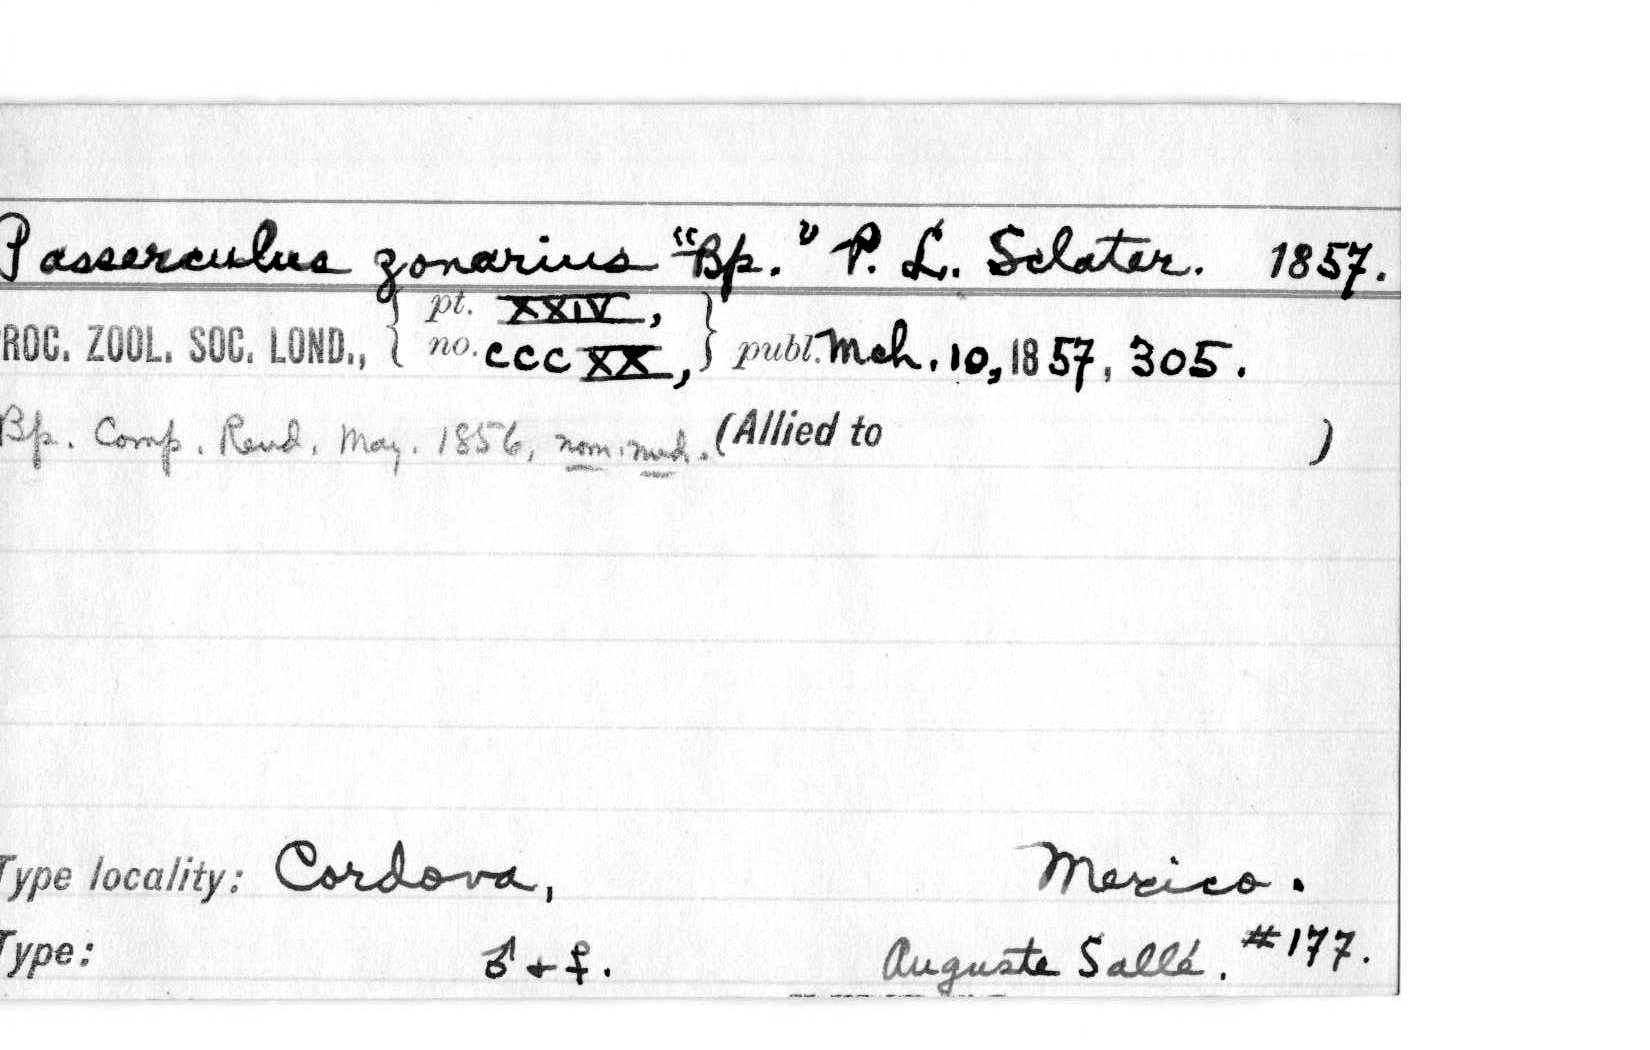 Passerculus zonarius "Bp." P. L. Sclater. 1857.
ROC. ZOOL. SOC. LOND., { pt. XXIV, no. CCCXX, } publ. Mch. 10, 1857, 305.
Bp. Comp. Rend. May. 1856, nom. nud. (Allied to )
Type locality: Cordova, Mexico.
Type: ♂ + ♀. Auguste Sallé. #177.